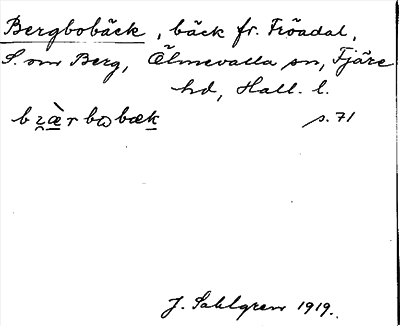 Bergbobäck, bäck fr. Fröadal,
S. om Berg, Ölmevalla sn, Fjäre
hd, Hall. l.
s. 71
J. Sahlgren 1919.